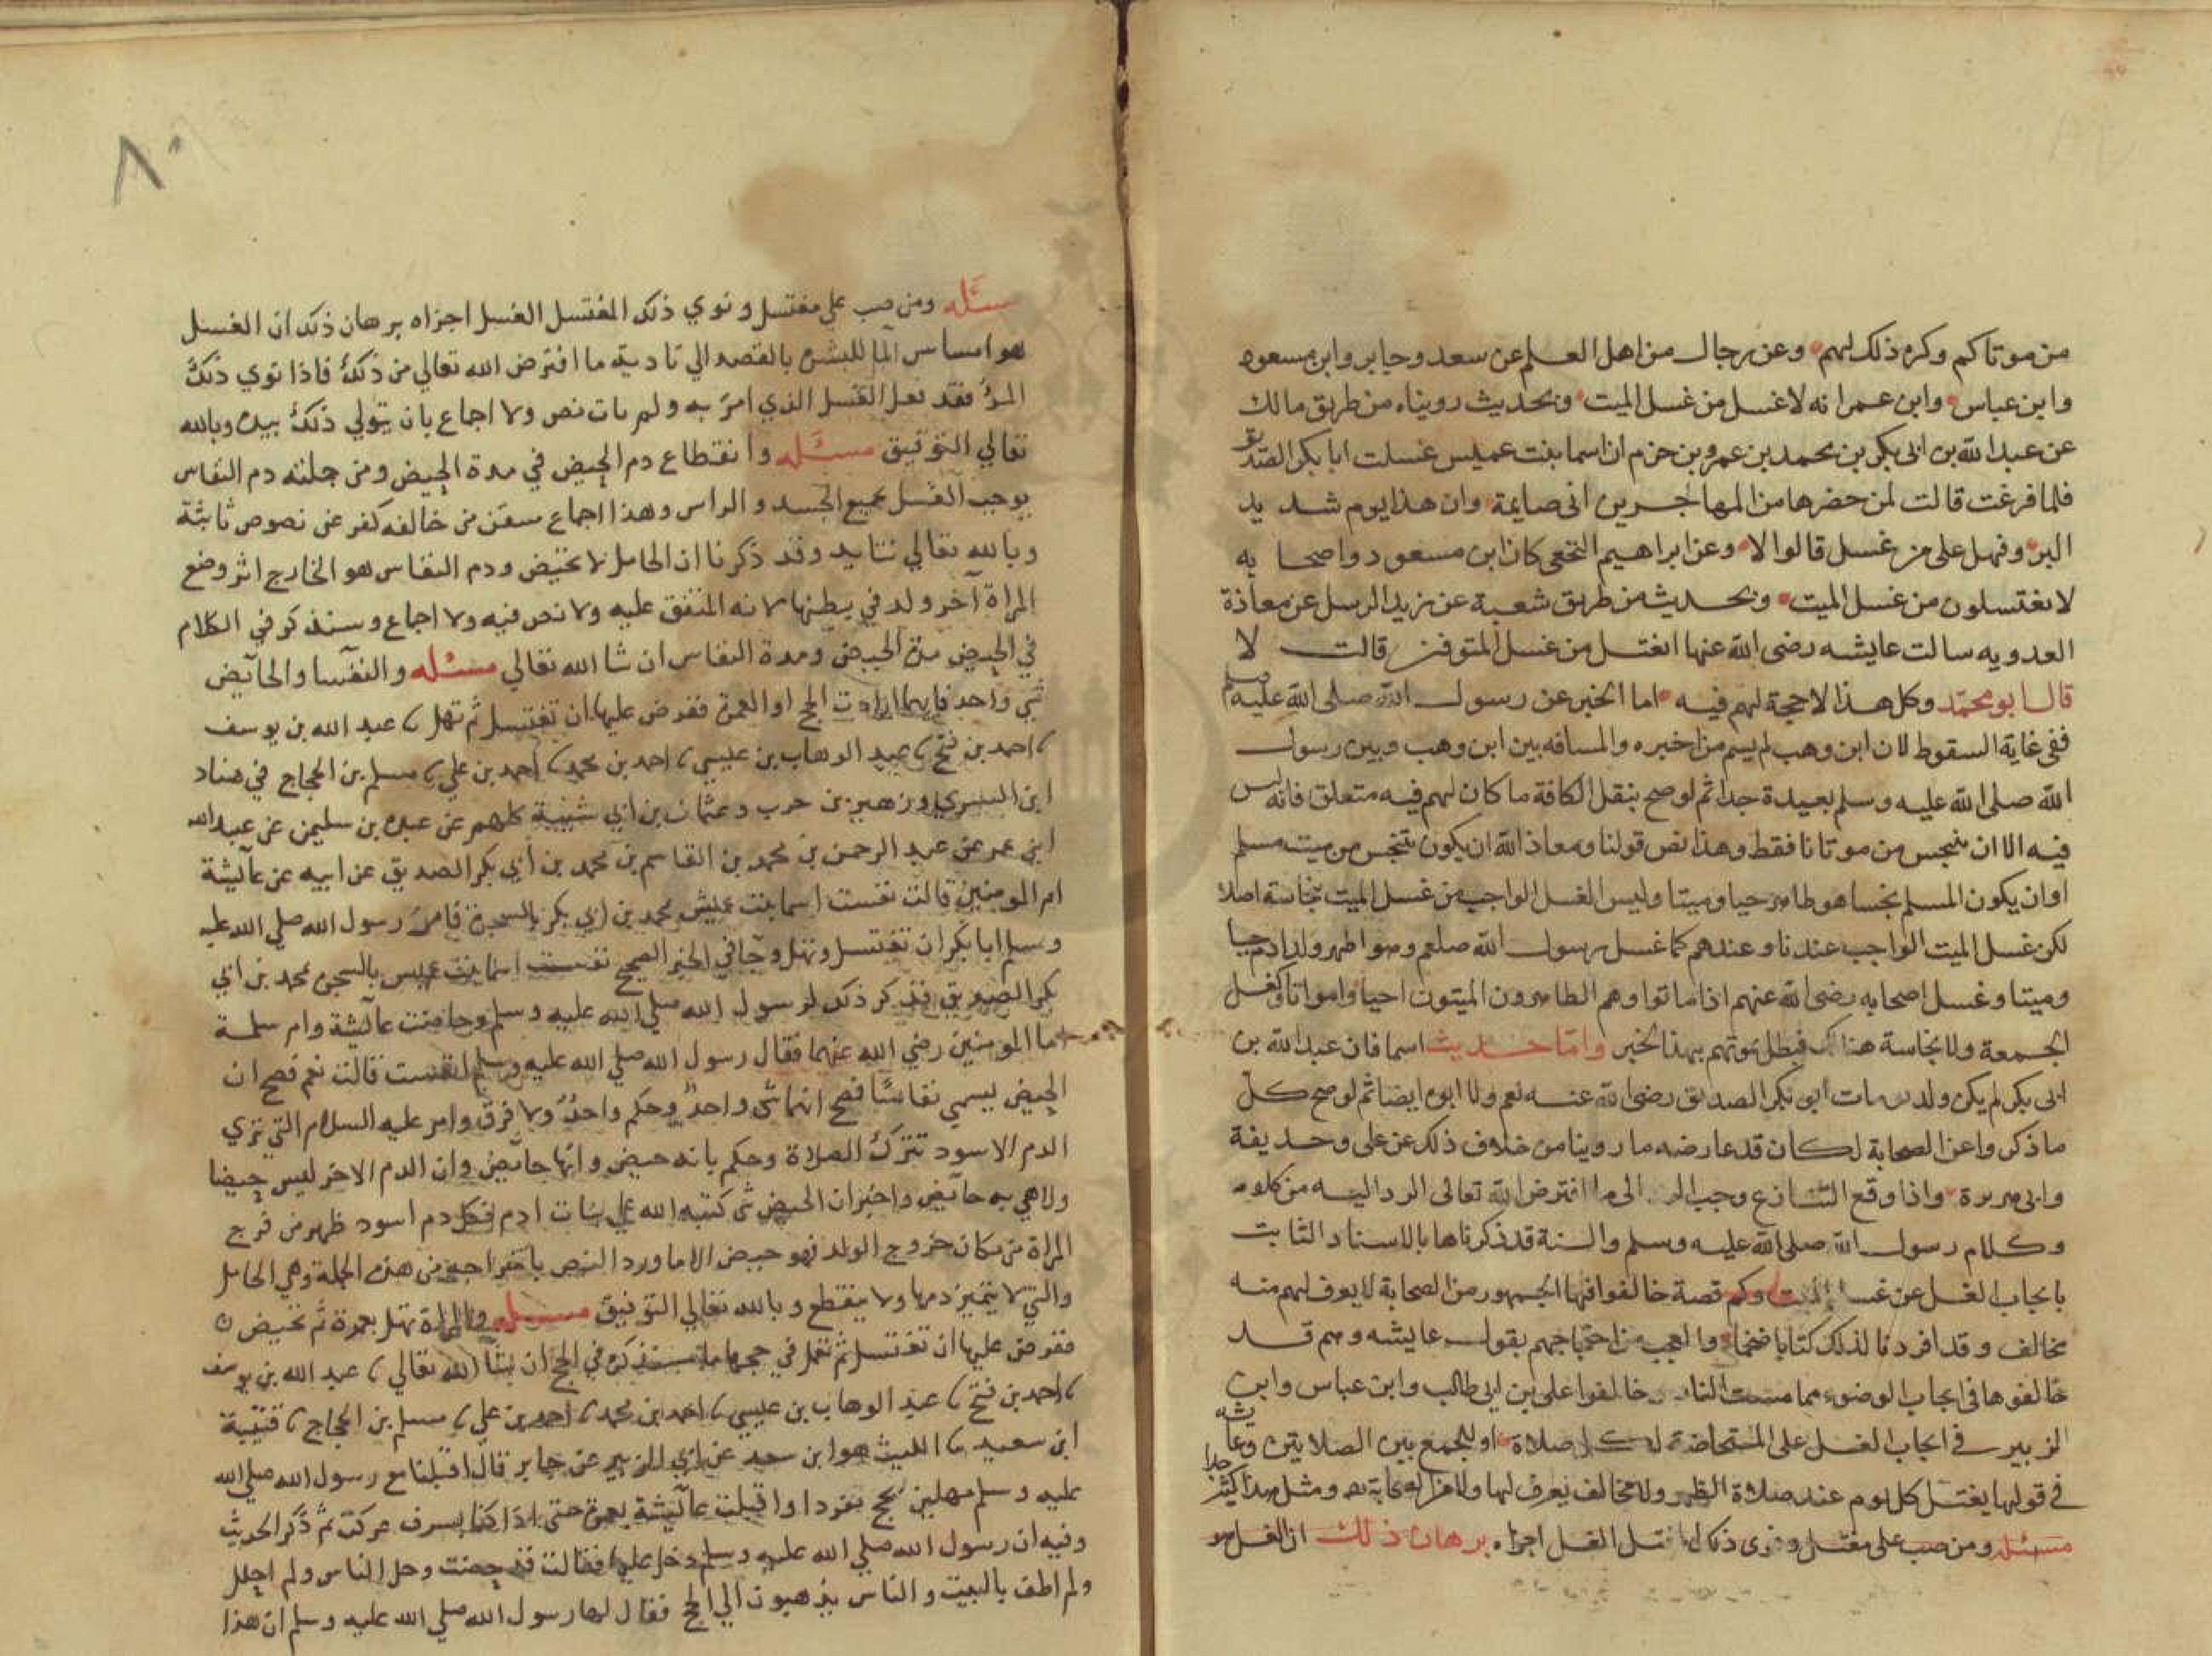 من موتاكم وكره ذلك لهم وعن رجال من اهل العلم عن سعد وجابر وابن مسعود
وابن عباس وابن عمر انه لا غسل من غسل الميت وبحديث رويناه من طريق مالك
عن عبد الله بن ابى بكر بن محمد بن عمرو بن حزم ان اسما بنت عميس غسلت ابا بكر الصديق
فلما فرغت قالت لمن حضرها من المهاجرين انى صايمة وان هذا يوم شديد
البرد فهل على من غسل قالوا لا وعن ابراهيم النخعى كان ابن مسعود واصحابه
لا يغتسلون من غسل الميت وبحديث من طريق شعبة عن يزيد الرسل عن معاذة
العدويه سالت عايشه رضى الله عنها ايغتسل من غسل المتوفين قالت لا
قال ابو محمد وكل هذا لا حجة لهم فيه اما الخبر عن رسول الله صلى الله عليه وسلم
ففى غاية السقوط لان ابن وهب لم يسم من اخبره والمسافه بين ابن وهب وبين رسول
الله صلى الله عليه وسلم بعيدة جدا ثم لو صح بنقل الكافة ما كان لهم فيه متعلق فانه ليس
فيه الا ان نتنجس من موتانا فقط وهذا نص قولنا ومعاذ الله ان يكون نتنجس من ميت مسلم
او ان يكون المسلم نجسا هو طاهر حيا وميتا وليس الغسل الواجب من غسل الميت نجاسة اصلا
لكن غسل الميت الواجب عندنا وعندهم كما غسل رسول الله صلعم وهو اطهر ولد ادم حيا
وميتا وغسل اصحابه رضى الله عنهم اذا ماتوا وهم الطاهرون الميتون احيا وامواتا وكغسل
الجمعة ولا نجاسة هناك فبطل تمويههم بهذا الخبر واما حديث اسما فان عبد الله بن
ابى بكر لم يكن ولد يوم مات ابو بكر الصديق رضى الله عنه نعم ولا ابوه ايضا ثم لو صح كل
ما ذكروا عن الصحابة لكان قد عارضه ما روينا من خلاف ذلك عن على وحذيفة
وابى هريرة واذا وقع التنازع وجب الرد الى ما افترض الله تعالى الرد اليه من كلامه
وكلام رسول الله صلى الله عليه وسلم والسنة قد ذكرناها بالاسناد الثابت
بايجاب الغسل من غسل الميت وكم قصة خالفوا فيها الجمهور من الصحابة لا يعرف لهم منه
مخالف وقد افردنا لذلك كتابا ضخما والعجب من احتجاجهم بقول عايشه وهم قد
خالفوها فى ايجاب الوضوء مما مست النار وخالفوا على بن ابى طالب وابن عباس وابن
الزبير فى ايجاب الغسل على المستحاضة لكل صلاة او للجمع بين الصلاتين وعايشه
فى قولها يغتسل كل يوم عند صلاة الظهر ولا مخالف يعرف لها ولا من الصحابة ومثل هذا كثير جدا
مسئله ومن صب على مغتسل ونوى ذلك المغتسل الغسل اجزاه برهان ذلك ان الغسل هو
٨٠
مسئله ومن صب علي مغتسل ونوي ذلك المغتسل الغسل اجزاه برهان ذلك ان الغسل
هو امساس الما للبشرة بالقصد الي تادية ما افترض الله تعالي من ذلك فاذا نوي ذلك
المرؤ فقد فعل الغسل الذي امر به ولم يات نص ولا اجماع بان يتولي ذلك بيده وبالله
تعالي التوفيق مسئله وانقطاع دم الحيض في مدة الحيض ومن جملته دم النفاس
يوجب الغسل لجميع الجسد والراس وهذا اجماع متيقن من خالفه كفر عن نصوص ثابتة
وبالله تعالي نتايد وقد ذكرنا ان الحامل لا تحيض ودم النفاس هو الخارج اثر وضع
المراة آخر ولد في بطنها لانه المتفق عليه ولا نص فيه ولا اجماع وسنذكر في الكلام
في الحيض مدة الحيض ومدة النفاس ان شا الله تعالي مسئله والنفسا والحآيض
شي واحد فايهما ارادت الحج او العمرة ففرض عليها ان تغتسل ثم تهل نا عبد الله بن يوسف
نا احمد بن فتح نا عبد الوهاب بن عيسي نا احمد بن محمد نا احمد بن علي نا مسلم بن الحجاج في هناد
ابن السري وزهير بن حرب وعثمان بن ابي شيبة كلهم عن عبده بن سليمن عن عبيد الله
ابن عمر عن عبد الرحمن بن محمد بن القاسم بن محمد بن ابي بكر الصديق عن ابيه عن عآئشة
ام المومنين قالت نفست اسما بنت عميس محمد بن ابي بكر بالشجرة فامر رسول الله صلي الله عليه
وسلم ابا بكر ان تغتسل وتهل وجآ في الخبر الصحيح نفست اسما بنت عميس بالشجرة محمد بن ابي
بكر الصديق فذكر ذلك لرسول الله صلي الله عليه وسلم وحاضت عآئشة وام سلمة
اما المومنين رضي الله عنهما فقال رسول الله صلي الله عليه وسلم انفست قالت نعم فصح ان
الحيض يسمي نفاسًا فصح انهما شي واحد وحكم واحد ولا فرق وامر عليه السلام التي تري
الدم الاسود تترك الصلاة وحكم بانه حيض وانها حآيض وان الدم الاخر ليس حيضا
ولا هي به حآيض واخبر ان الحيض شي كتبه الله علي بنات ادم فكل دم اسود ظهر من فرج
المراة من مكان خروج الولد فهو حيض الا ما ورد النص باخراجه من هذه الجملة وهي الحامل
والتي لا يتميز دمها ولا ينقطع وبالله تعالي التوفيق مسئله والمراة تهل بعمرة ثم تحيض
ففرض عليها ان تغتسل ثم تعمل في حجها ما سنذكره في الحج ان شآ الله تعالي نا عبد الله بن يوسف
نا احمد بن فتح نا عبد الوهاب بن عيسي نا احمد بن محمد نا احمد بن علي نا مسلم بن الحجاج نا قتيبة
ابن سعيد نا الليث هو ابن سعد عن ابي الزبير عن جابر قال اقبلنا مع رسول الله صلي الله
عليه وسلم مهلين بحج مفردا واقبلت عآئشة بعمرة حتى اذا كنا بسرف عركت ثم ذكر الحديث
وفيه ان رسول الله صلي الله عليه وسلم دخل عليها فقالت قد حضت وحل الناس ولم احلل
ولم اطف بالبيت والناس يذهبون الي الحج فقال لها رسول الله صلي الله عليه وسلم ان هذا